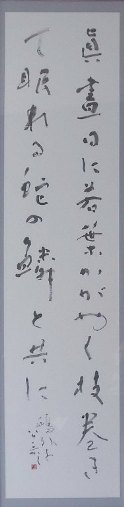 眞晝日に若葉かがやく枝巻き
て眠れる蛇の鱗と共に